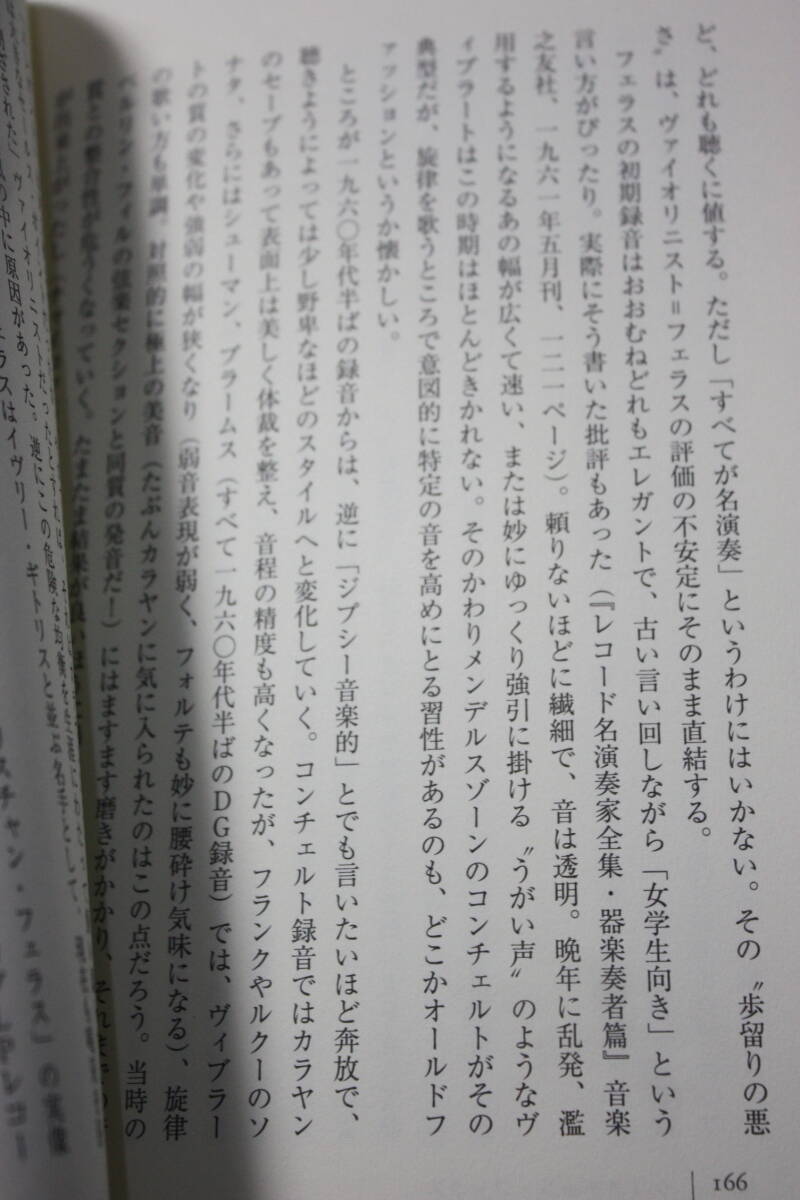 ど、どれも聴くに値する。ただし「すべてが名演奏」というわけにはいかない。その〝歩留りの悪
さ〟は、ヴァイオリニスト＝フェラスの評価の不安定にそのまま直結する。
フェラスの初期録音はおおむねどれもエレガントで、古い言い回しながら「女学生向き」という
言い方がぴったり。実際にそう書いた批評もあった（『レコード名演奏家全集・器楽奏者篇』音楽
之友社、一九六一年五月刊、一二一ページ）。頼りないほどに繊細で、音は透明。晩年に乱発、濫
用するようになるあの幅が広くて速い、または妙にゆっくり強引に掛ける〝うがい声〟のようなヴ
ィブラートはこの時期はほとんどきかれない。そのかわりメンデルスゾーンのコンチェルトがその
典型だが、旋律を歌うところで意図的に特定の音を高めにとる習性があるのも、どこかオールドフ
ァッションというか懐かしい。
ところが一九六〇年代半ばの録音からは、逆に「ジプシー音楽的」とでも言いたいほど奔放で、
聴きようによっては少し野卑なほどのスタイルへと変化していく。コンチェルト録音ではカラヤン
のセーブもあって表面上は美しく体裁を整え、音程の精度も高くなったが、フランクやルクーのソ
ナタ、さらにはシューマン、ブラームス（すべて一九六〇年代半ばのDG録音）では、ヴィブラー
トの質の変化や強弱の幅が狭くなり（弱音表現が弱く、フォルテも妙に腰砕け気味になる）、旋律
の歌い方も単調。対照的に極上の美音（たぶんカラヤンに気に入られたのはこの点だろう。当時の
ベルリン・フィルの弦楽セクションと同質の発音だ！）にはますます磨きがかかり、それまでの
質との整合性が危うくなっていく。たまたま結果が良い
ヴァイオリニストだったとすれば
の中に原因があった。逆にこの危険な均衡を
ラスはイヴリー・ギトリスと並ぶ名手として、
スチャン・フェラス」の実像
166